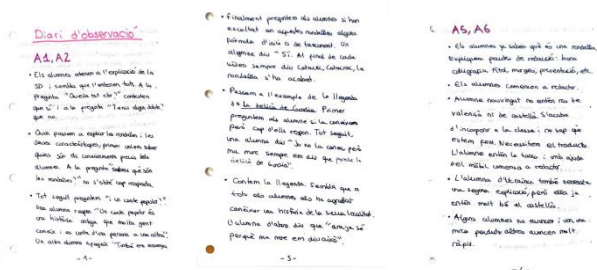 Diari d'observació
A1, A2
• Els alumnes atenen a l'explicació de la
SD i sembla que l'entenen tots. A la
pregunta "Queda tot clar?" contesten
que sí i a la pregunta "Teniu algun dubte?"
que no.
• Quan passem a explicar les rondalles i les
seues característiques, primer volem saber
quins són els coneixements previs dels
alumnes. A la pregunta "Sabeu què són
les rondalles?" no s'obté cap resposta.
• Tot seguit preguntem "i un conte popular?"
Una alumna respon "Un conte popular és
una història antiga que molta gent
coneix i es conta d'una persona a una altra".
Un altre alumne afegeix "També ens ensenya
- 1 -
• Finalment preguntem als alumnes si han
escoltat en aquestes rondalles alguna
fórmula d'inici o de tancament. Un
alumne diu "Sí. Al final de cada
vídeo sempre diu Catacric, catacrac, la
rondalla s'ha acabat.
• Passem a l'exemple de la llegenda
de la delicà de Gandia. Primer
preguntem als alumnes si la coneixen
però cap d'ells respon. Tot seguit,
una alumna diu "Jo no la conec, però
ma mare sempre em diu que pareix la
delicà de Gandia".
• Contem la llegenda. Sembla que a
tots els alumnes els ha agradat
conèixer una història de la seua localitat.
L'alumna d'abans diu que "ara ja sé
perquè ma mare em diu això".
- 3 -
A5, A6
• Els alumnes ja saben què és una rondalla.
Expliquem pautes de redacció: bona
cal·ligrafia, títol, marges, presentació, etc.
• Els alumnes comencen a redactar.
• Alumne nouvingut no entén res de
valencià ni de castellà. S'acaba
d'incorporar a la classe i no sap què
estem fent. Necessitem el traductor.
L'alumne entén la tasca i amb ajuda
del mòbil comença a redactar.
• L'alumna d'Ucraïna també necessita
una segona explicació, però ella ja
entén molt bé el castellà.
• Alguns alumnes no avancen i van un
mica perduts, altres avancen molt
ràpid.